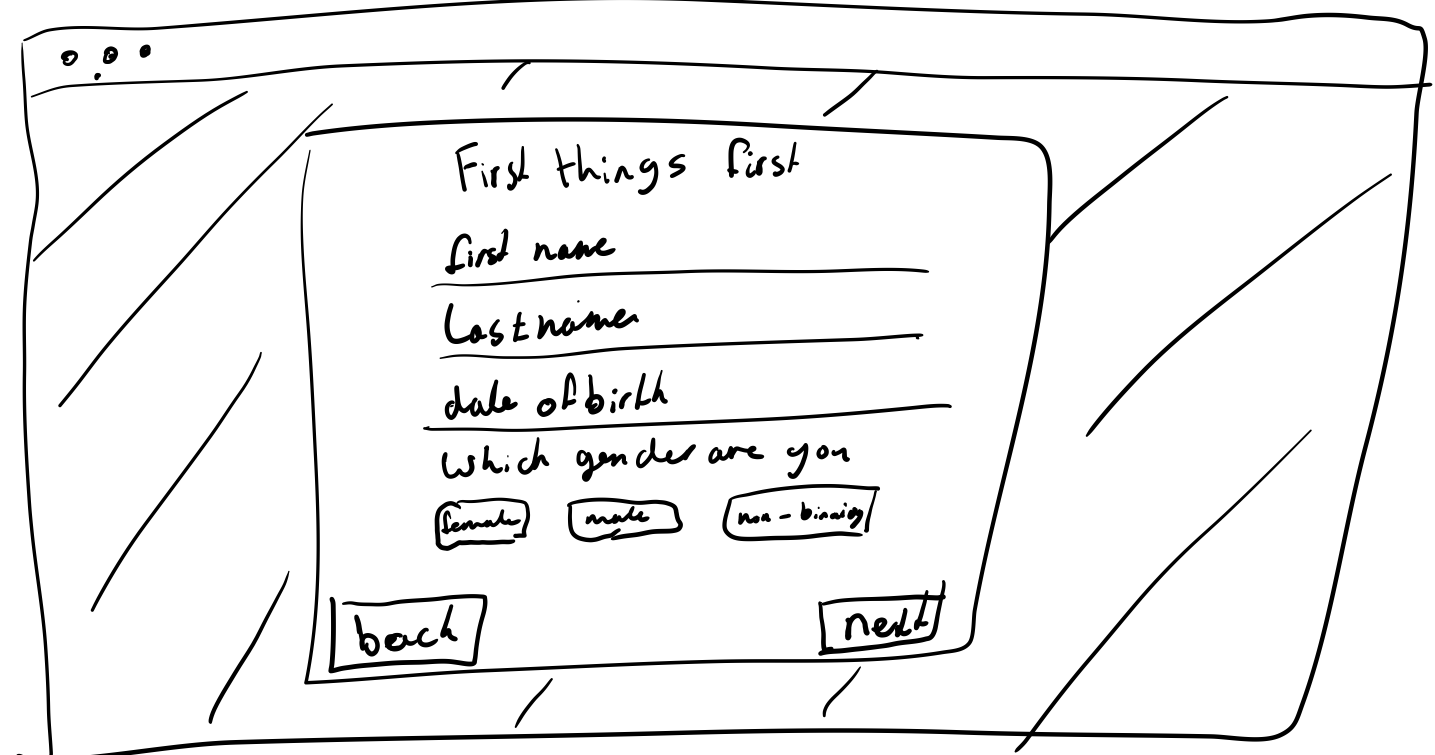 First things first
first name
Last name
date of birth
which gender are you
female male non-binary
back next